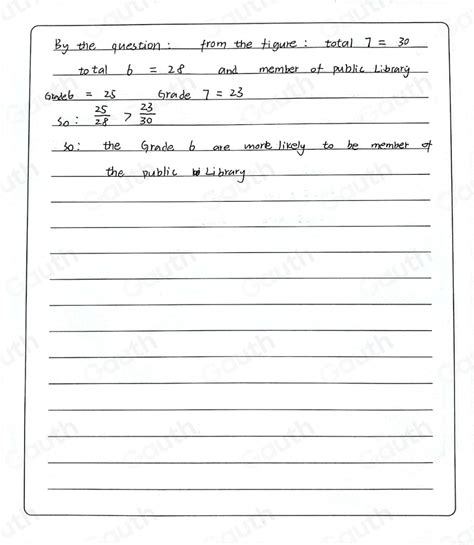 By the question: from the figure: total 7 = 30
total 6 = 28 and member of public Library
Grade6 = 25 Grade 7 = 23
so: 25/28 > 23/30
so: the Grade 6 are more likely to be member of
the public Library